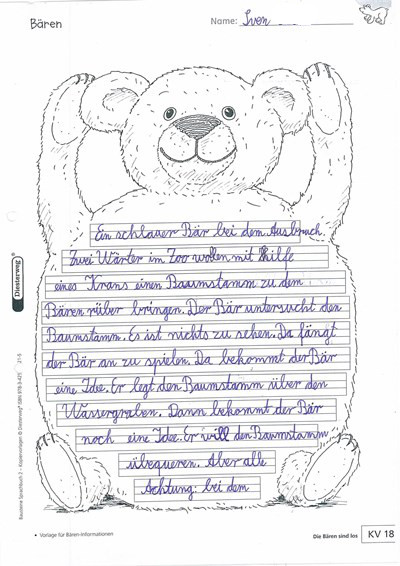 Bären
Name: Sven
Ein schlauer Bär bei dem Ausbruch
Zwei Wärter im Zoo wollen mit Hilfe
eines Krans einen Baumstamm zu dem
Bären rüber bringen. Der Bär untersucht den
Baumstamm. Es ist nichts zu sehen. Da fängt
der Bär an zu spielen. Da bekommt der Bär
eine Idee. Er legt den Baumstamm über den
Wassergraben. Dann bekommt der Bär
noch eine Idee. Er will den Baumstamm
übequeren. Aber alle
Achtung: bei dem
Diesterweg
• Vorlage für Bären-Informationen
Die Bären sind los
KV 18